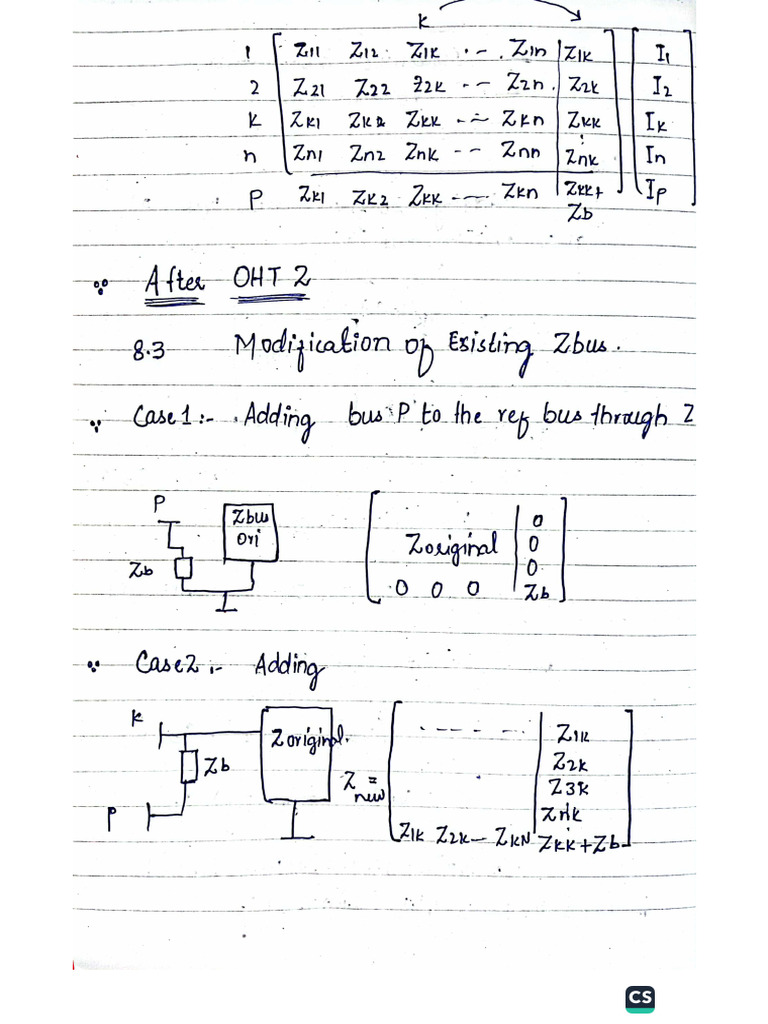 k
1 Z11 Z12 Z1K .-. Z1n Z1K I1
2 Z21 Z22 Z2K -- Z2n. Z2K I2
k ZK1 ZK2 ZKK -.- ZKn ZKK IK
n Zn1 Zn2 ZnK -- Znn ZnK In
P ZK1 ZK2 ZKK ---. ZKn ZKK+ IP
Zb
After OHT 2
8.3 Modification of Existing Zbus.
Case1:- Adding bus P to the ref bus through Z
P Zbus
Ori
Zb
Zoriginal 0
0
0
0 0 0 Zb
Case2:- Adding
k
Zoriginal.
Zb
P
Z new = - - - - - - Z1K
Z2K
Z3K
Z1K Z2K - ZKN ZKK+Zb
CS